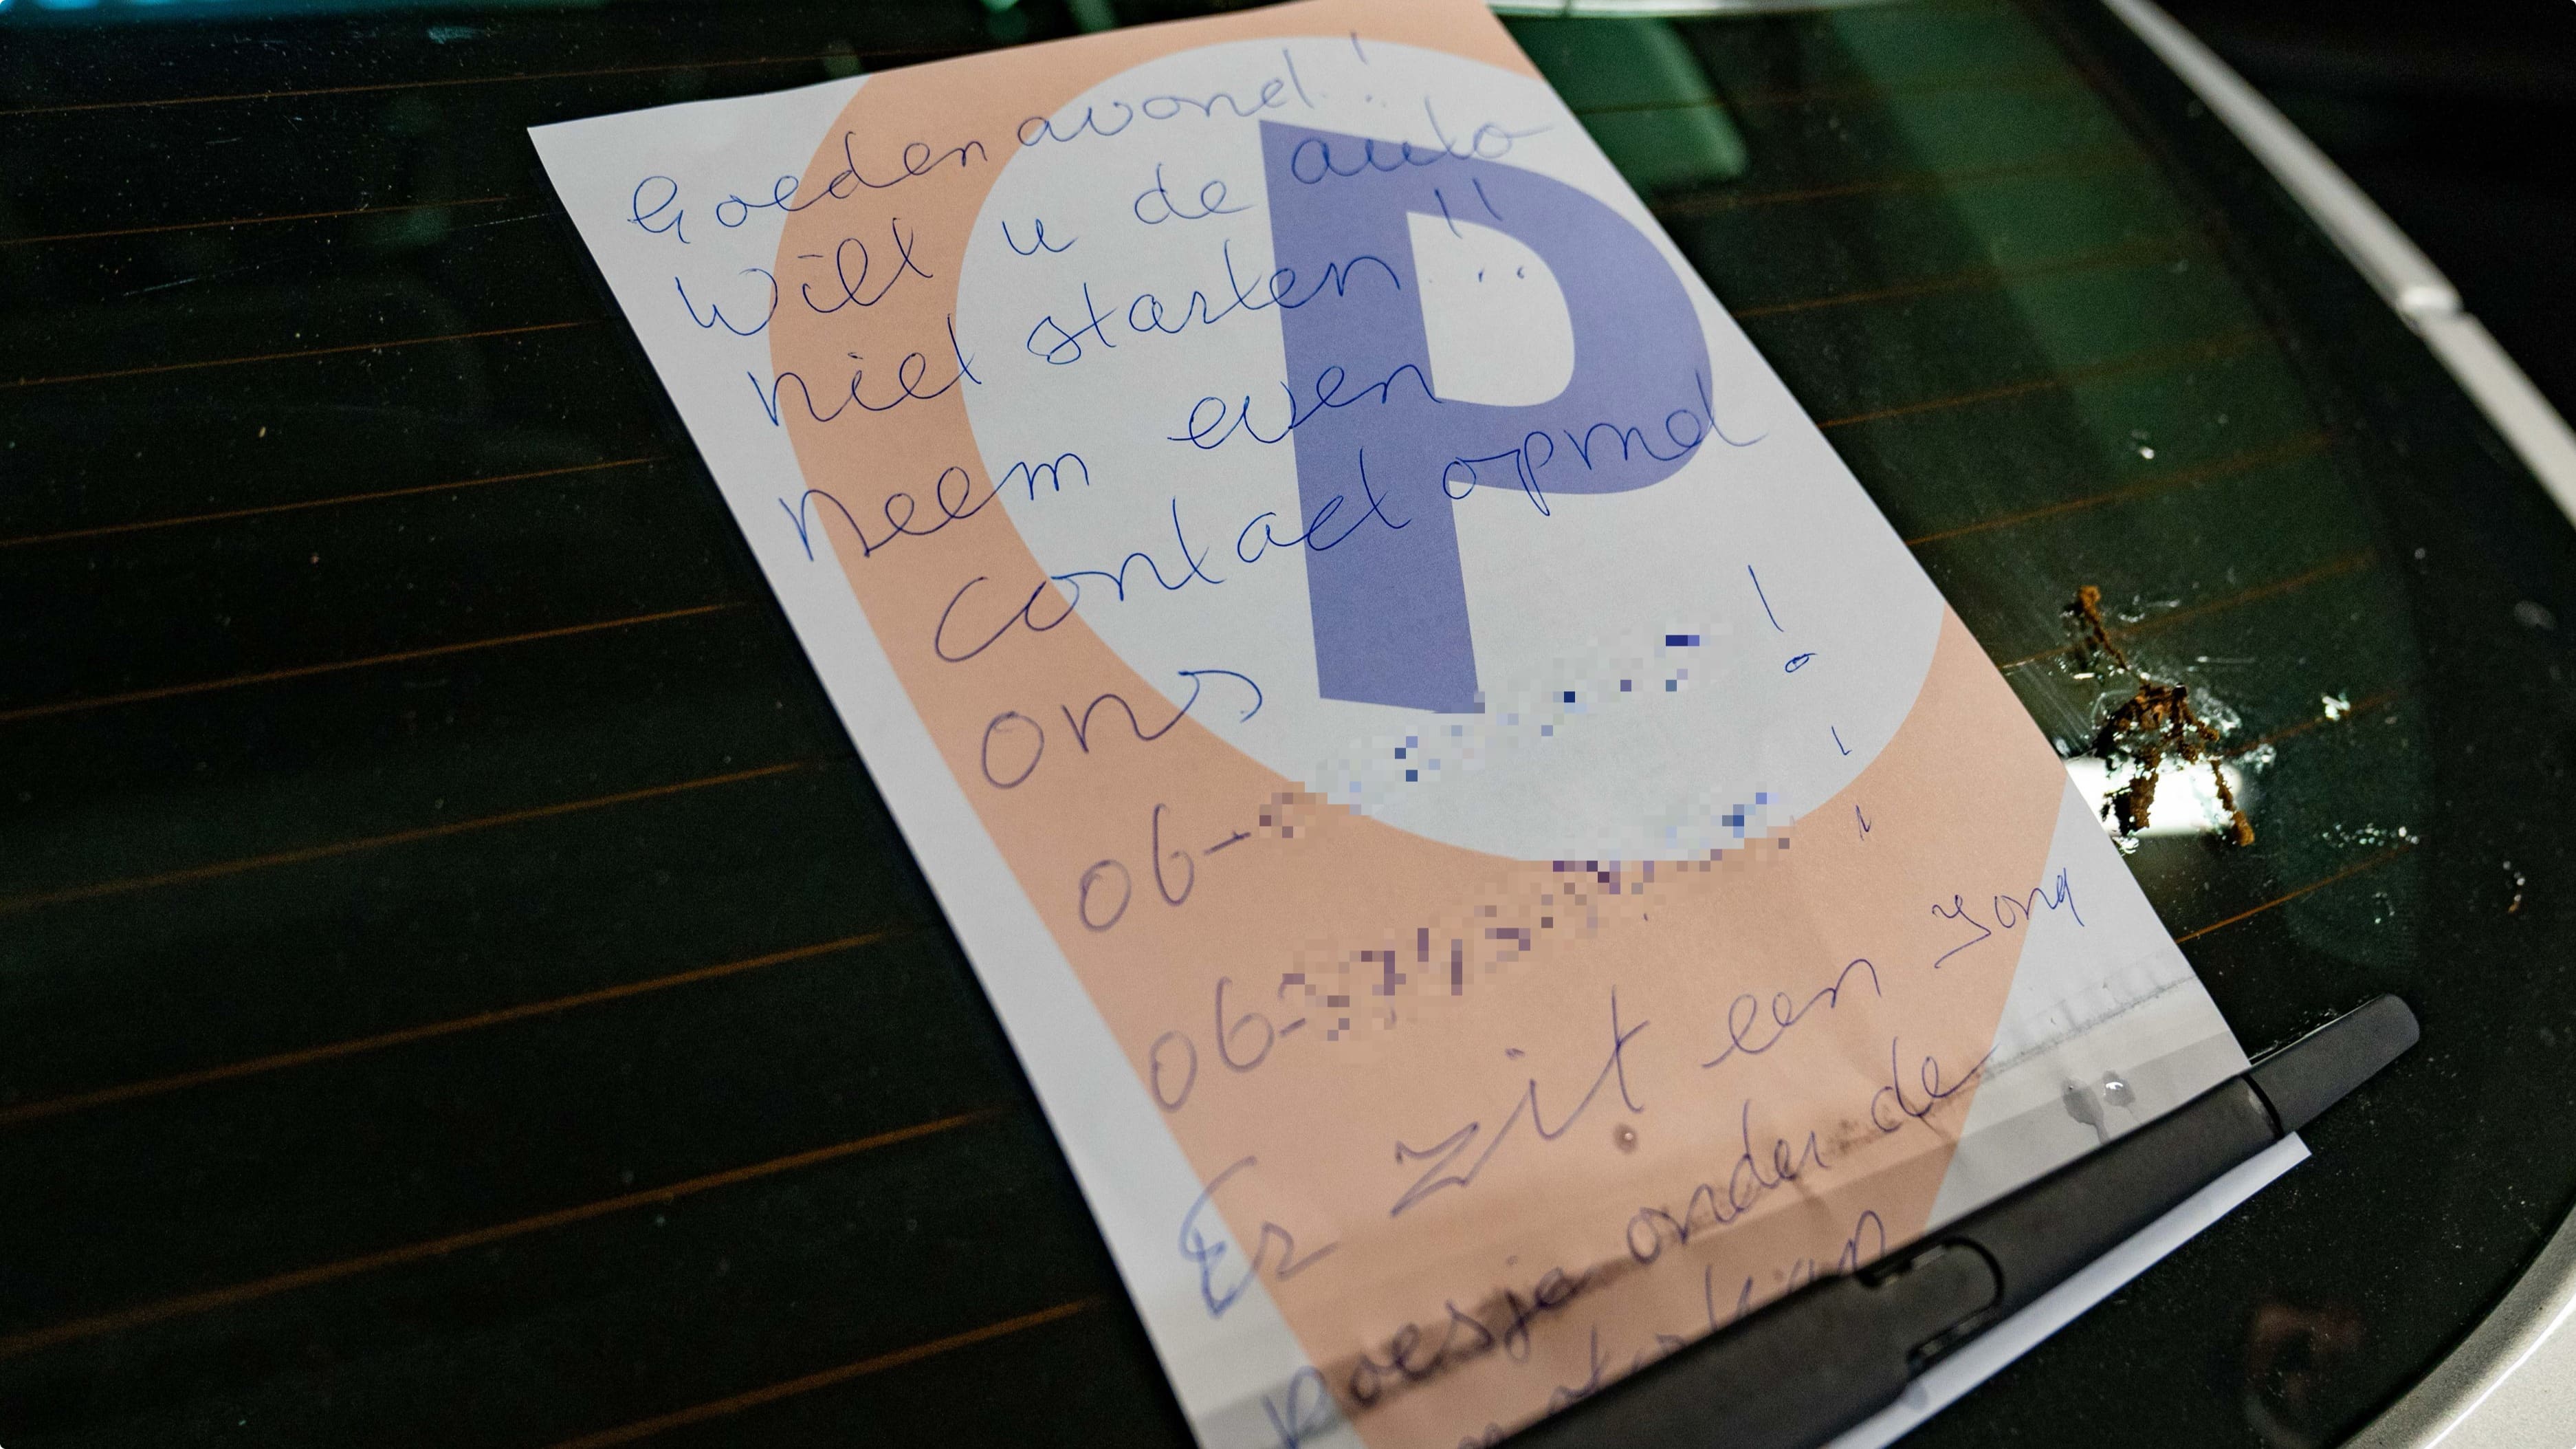 Goedenavond!
Wilt u de auto
niet starten!!
Neem even
contact op met
ons
06-
06-
!
Er zit een jong
poesje onder de
motorkap
P